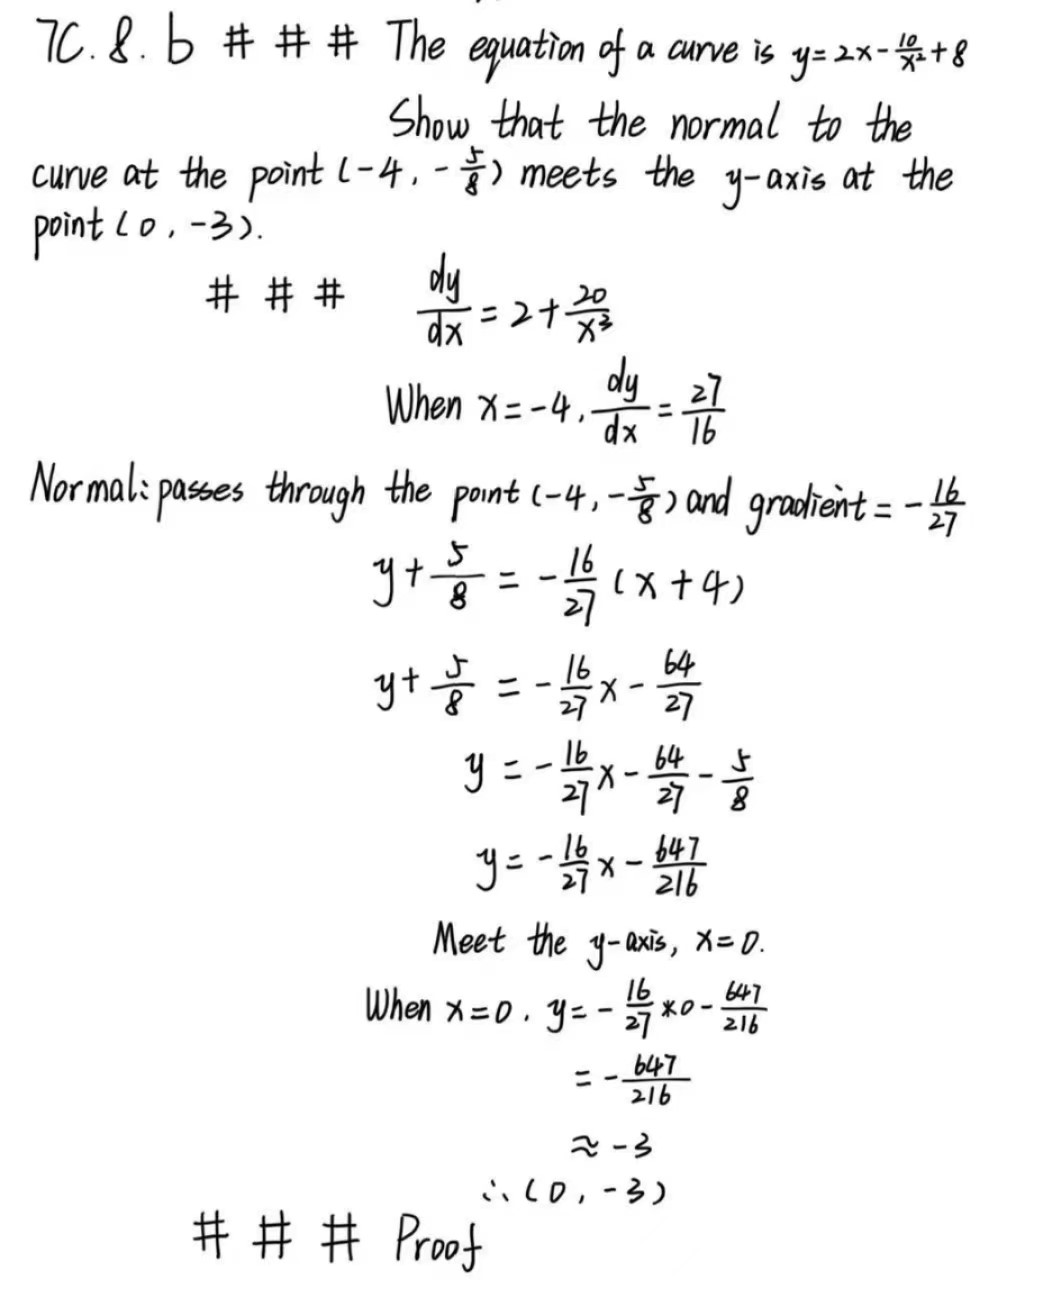 7C.8.b # # # The equation of a curve is y=2x-10/x²+8
Show that the normal to the
curve at the point (-4, -5/8) meets the y-axis at the
point (0, -3).
# # # dy/dx = 2+20/x³
When x=-4, dy/dx = 27/16
Normal: passes through the point (-4, -5/8) and gradient = -16/27
y+5/8 = -16/27(x+4)
y+5/8 = -16/27x-64/27
y = -16/27x-64/27-5/8
y=-16/27x-647/216
Meet the y-axis, x=0.
When x=0, y=-16/27*0-647/216
=-647/216
≈-3
∴(0, -3)
# # # Proof